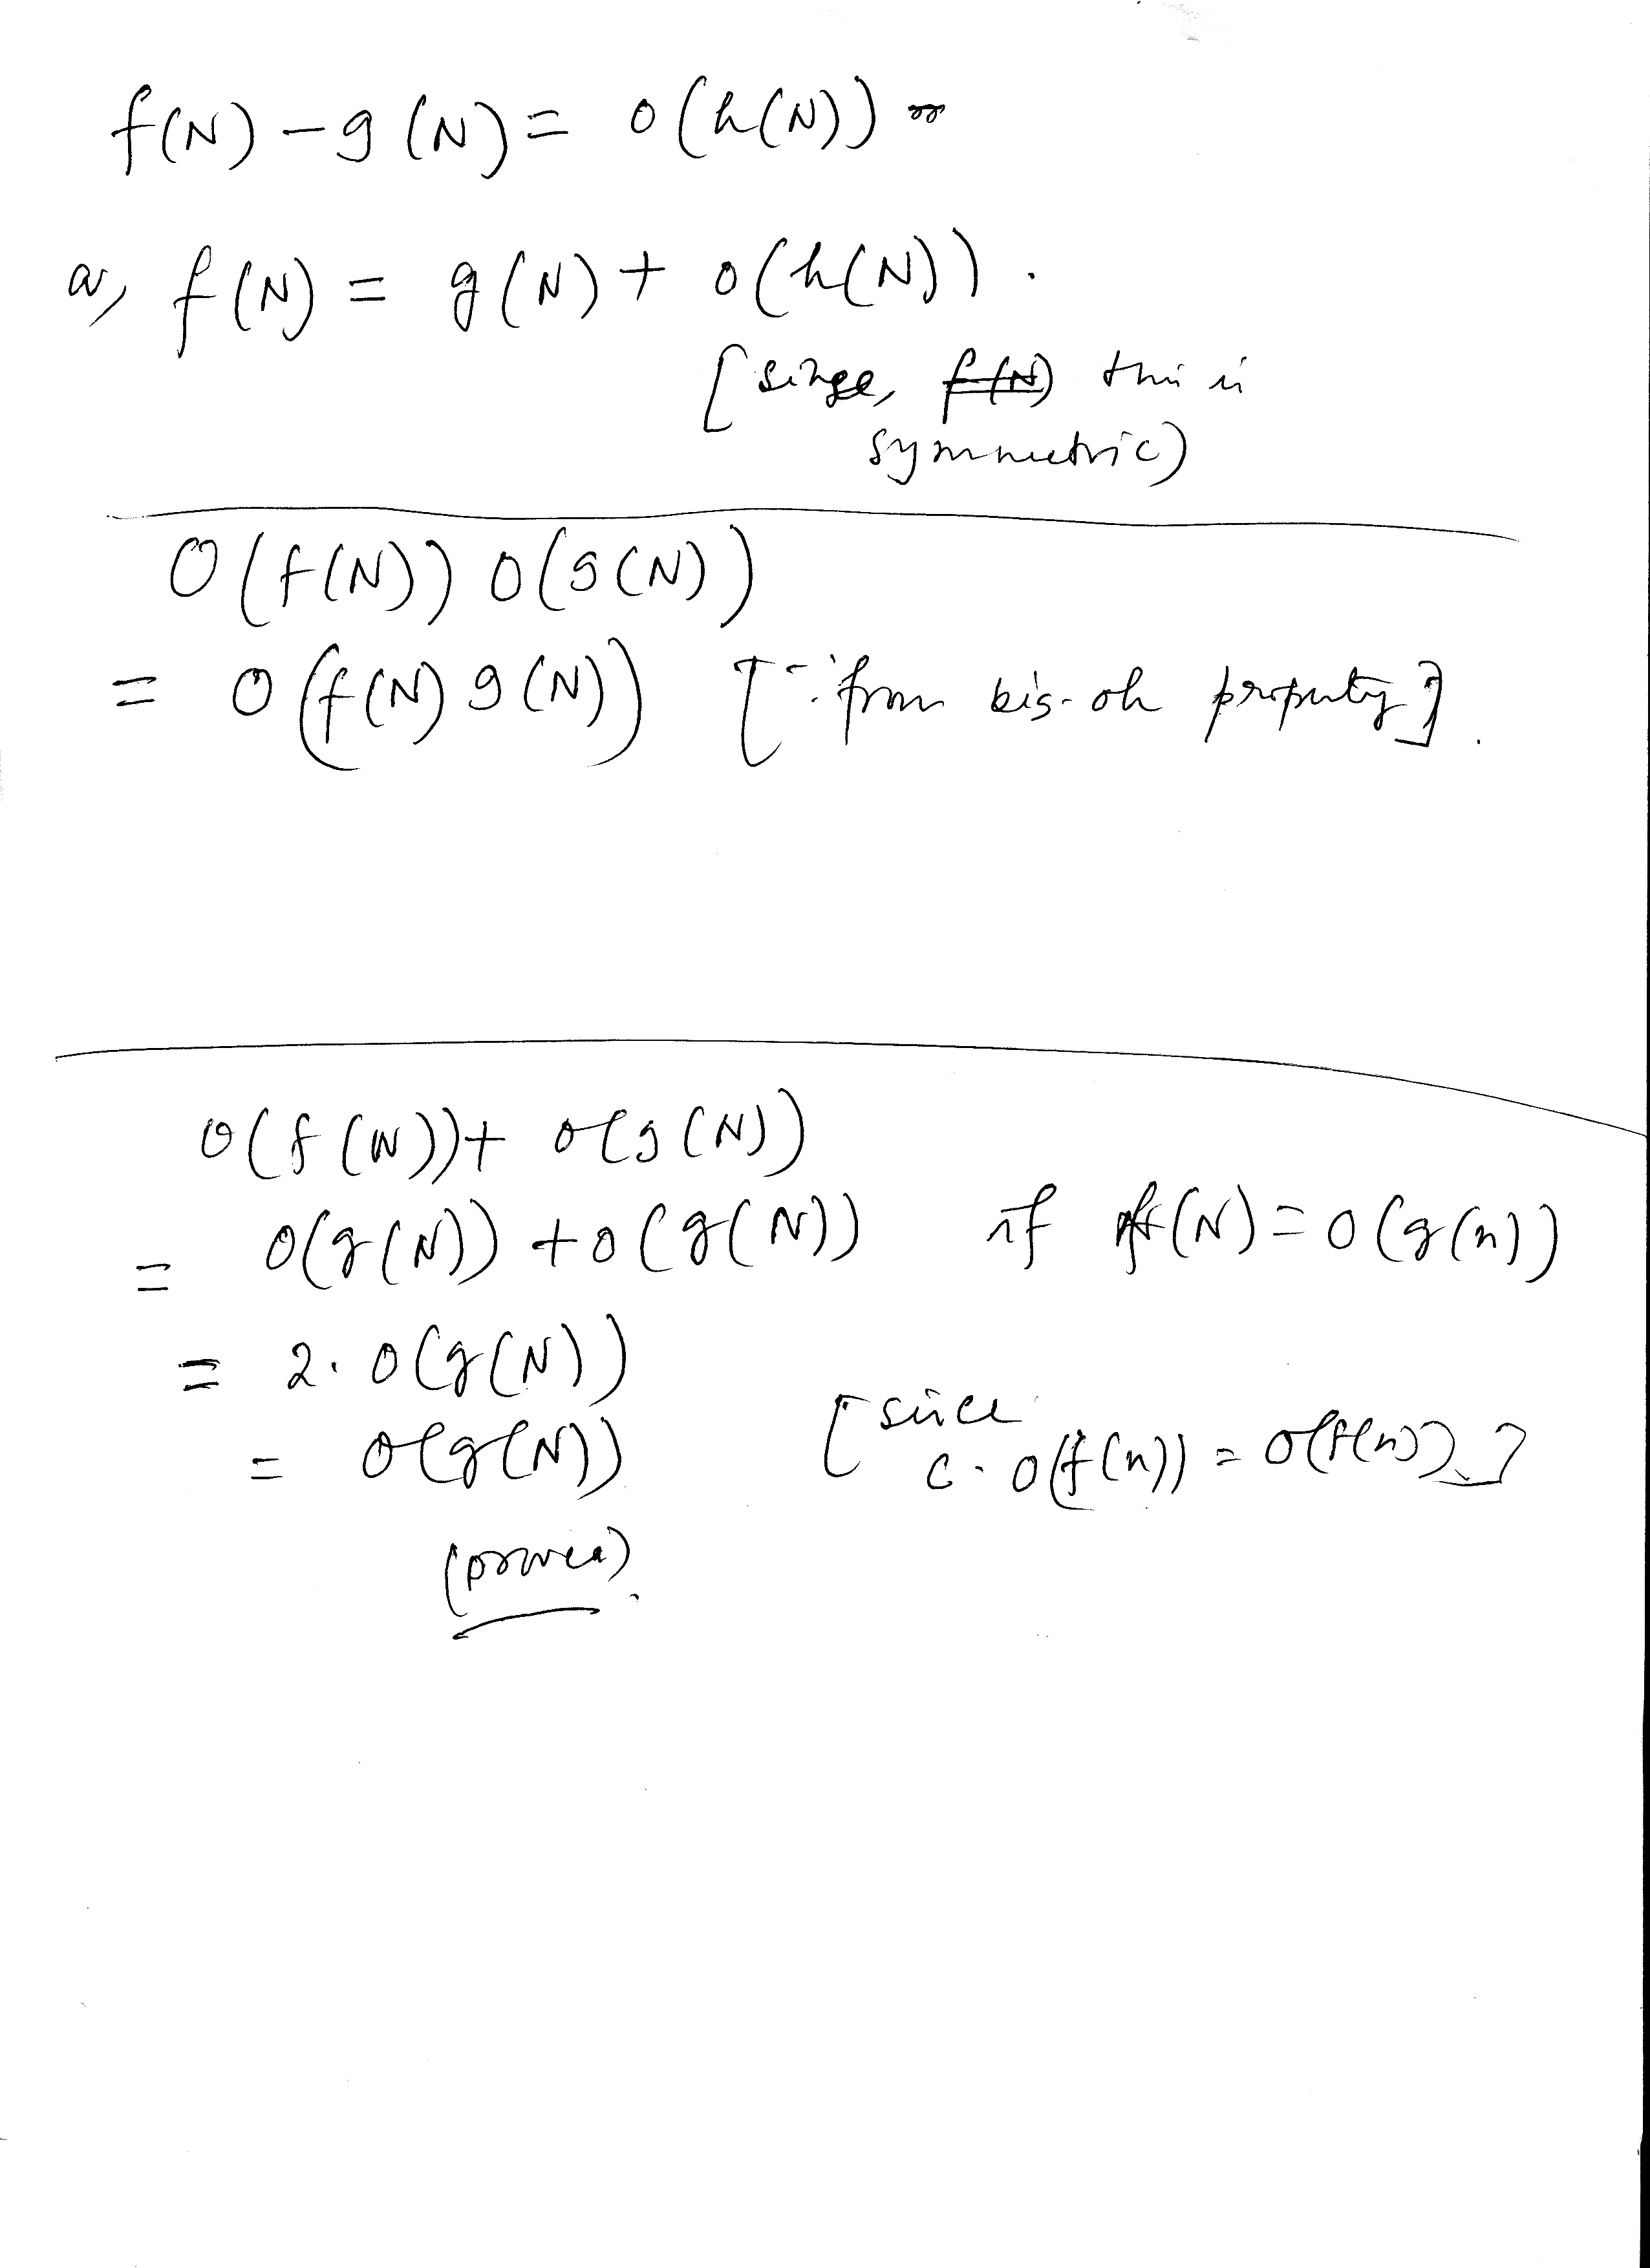 f(N) - g(N) = O(h(N))
or, f(N) = g(N) + O(h(N)).
[since, f(N) this is
symmetric)
O(f(N)) O(g(N))
= O(f(N) g(N)) [∵ from big-oh property].
O(f(N)) + O(g(N))
= O(g(N)) + O(g(N)) if f(N) = O(g(n))
= 2. O(g(N))
= O(g(N)) [since c. O(f(n)) = O(f(n))]
(proved).